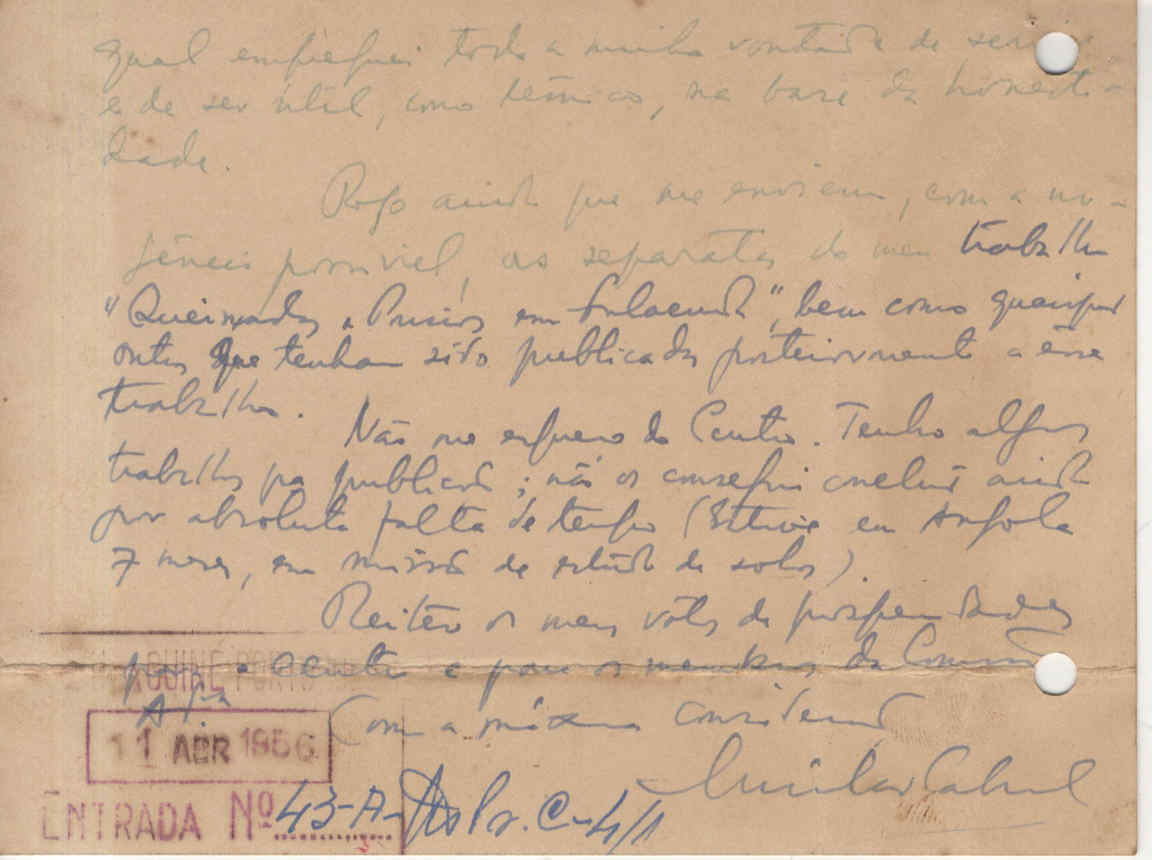 qual empreguei toda a minha vontade de servir
e de ser útil, como técnico, na base da honesti-
dade.
Rogo ainda que me enviem, com a ur-
gência possível, as separatas do meu trabalho
"Queimadas e Pousios em Fulacunda", bem como quaisquer
outros que tenham sido publicados posteriormente a esse
trabalho.
Não me esqueço do Centro. Tenho alguns
trabalhos pa publicar; não os consegui concluir ainda
por absoluta falta de tempo (Estive em Angola
7 meses, em missão de estudo de solos).
Reitero os meus votos de prosperidades
para o Centro e para os membros da Comissão
Com a máxima consideração
Amílcar Cabral
GUINÉ PORTUGUESA
11 ABR 1956
ENTRADA Nº 43-A